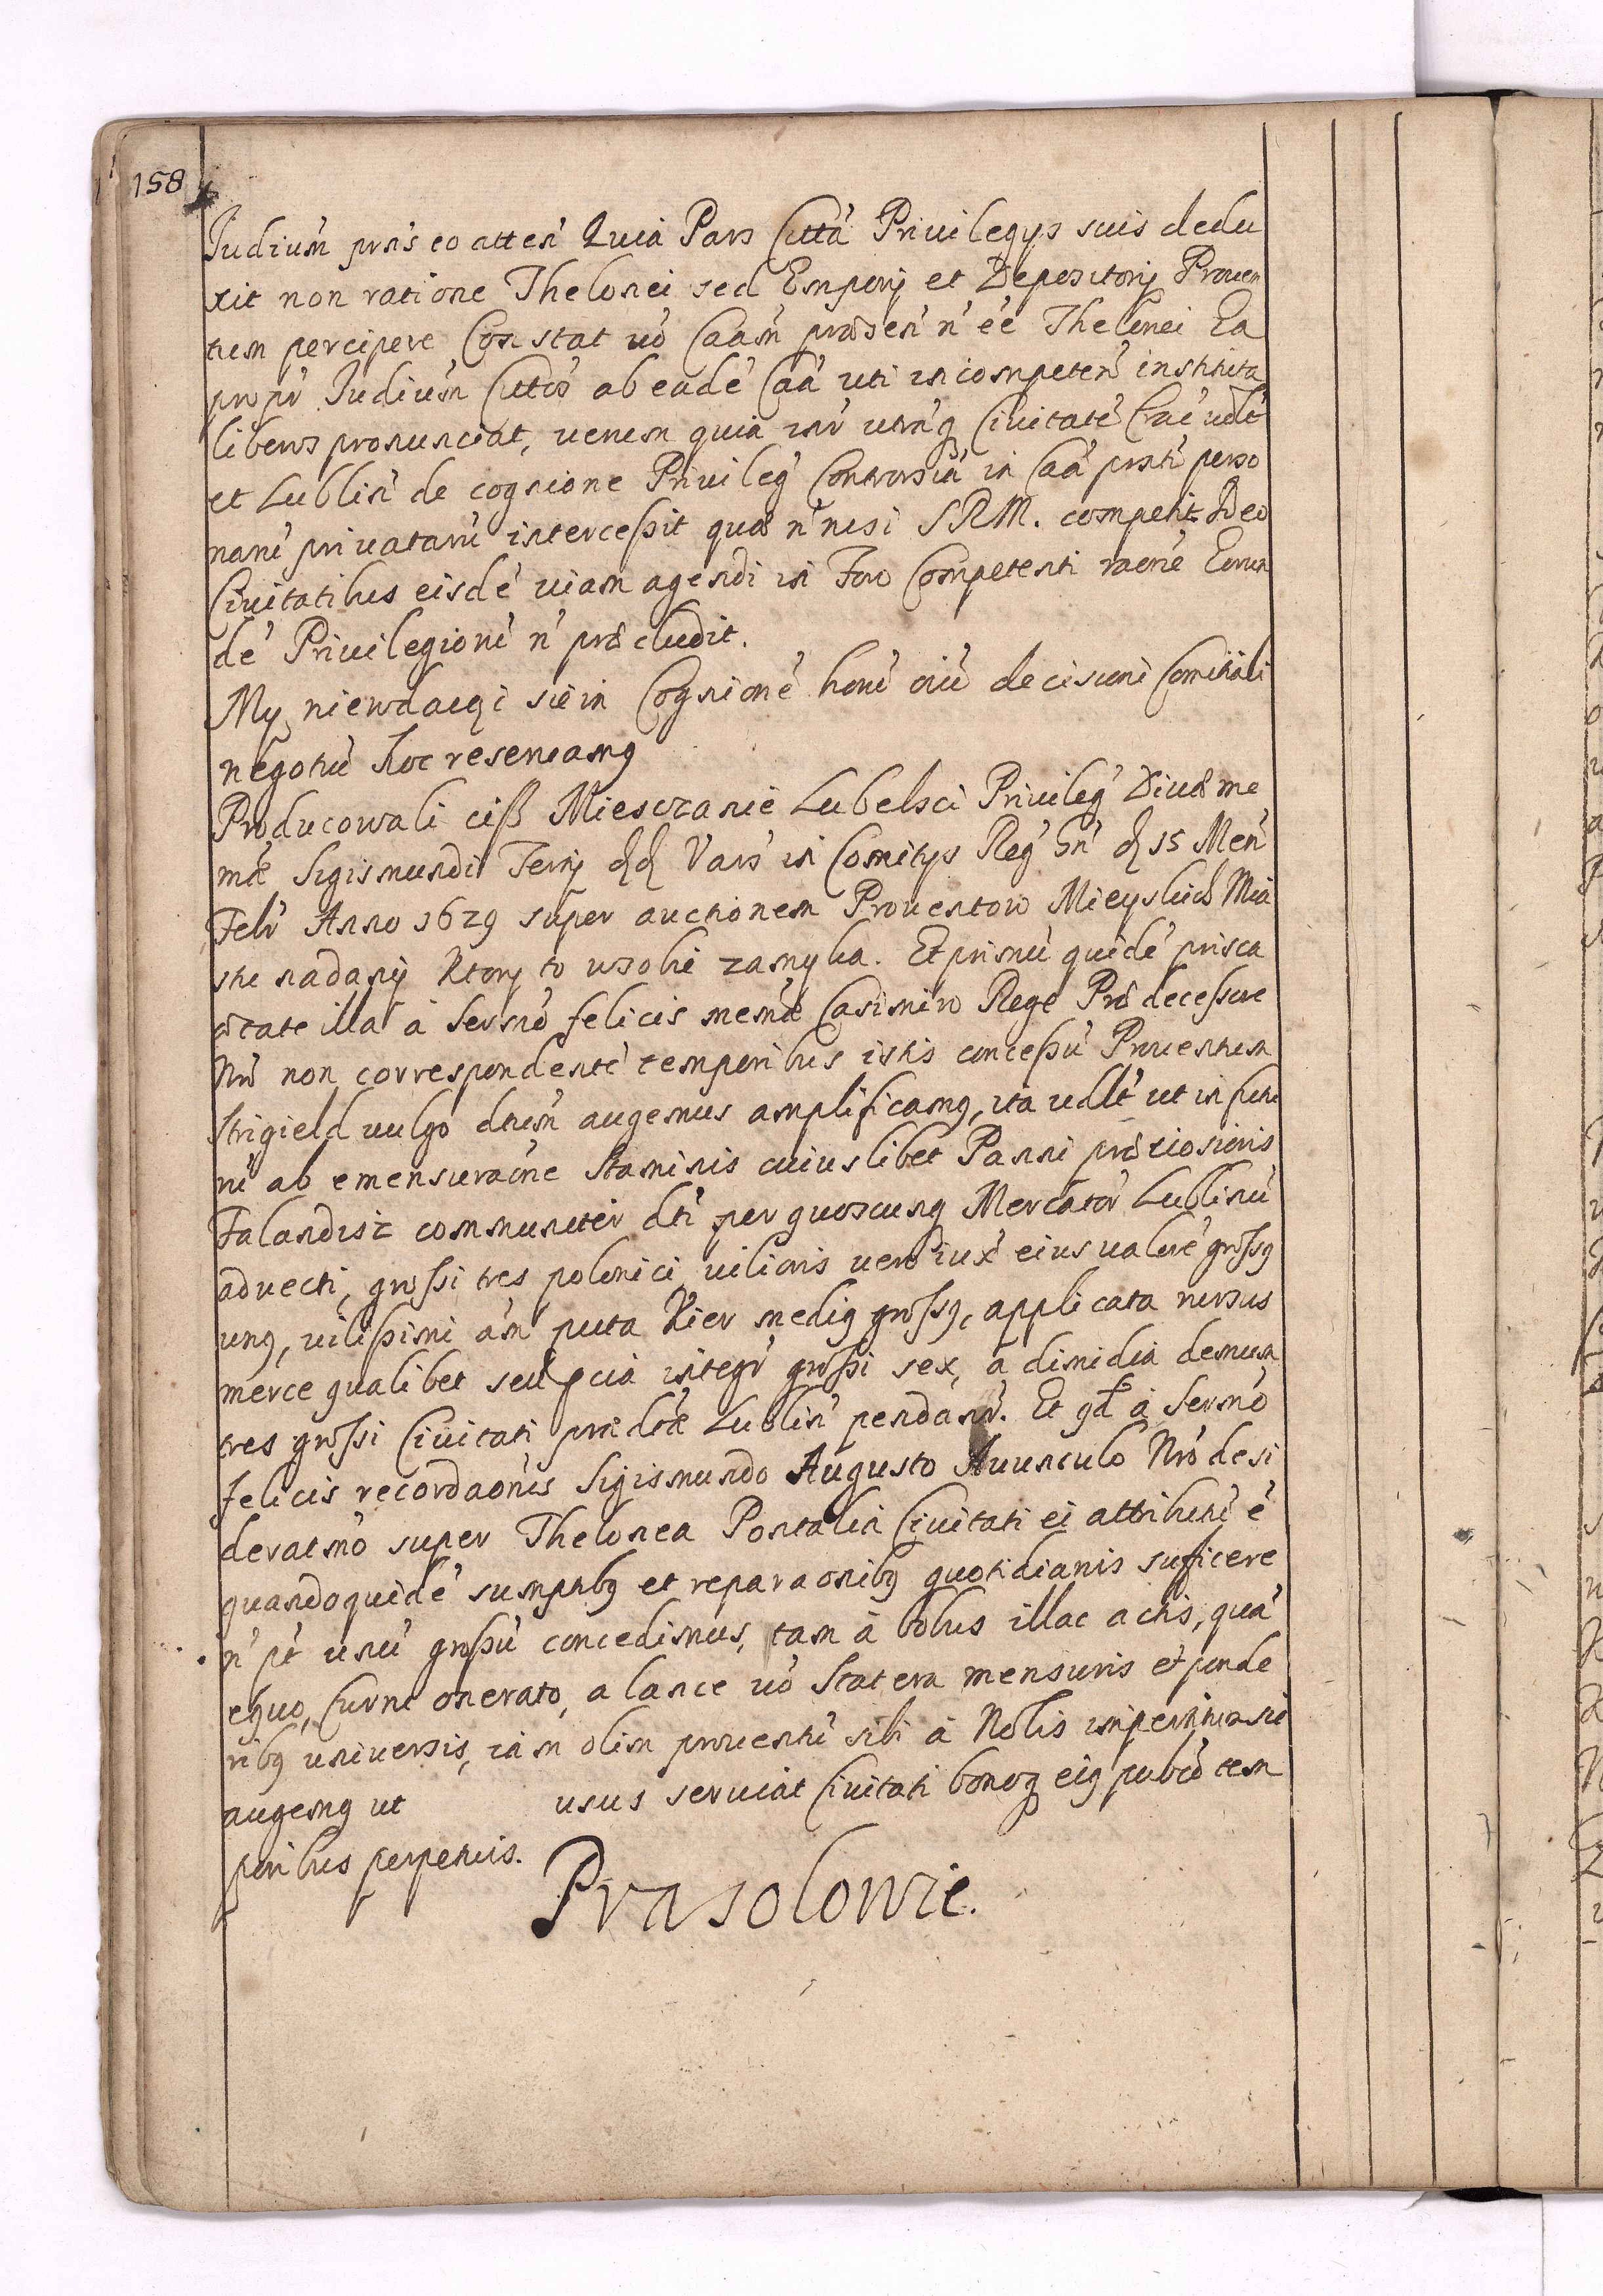 158
Iudium prns eo atten Quia Pars Citta Privilegys suis dedu
xit non ratione Thelonei sed Emporij et Depositorij Proven
tum percipere Constat vo Caam præsen n ee Thelonei Ea
propr Iudium Cittos ab eade Caa uti incompeten instituta
liberos pronunciat, verum quia inr utrnq Civitate Crac vdlt
et Lublin de cognione Privileg Controrsia in Caa prnti perso
naru privataru intercessit quæ n nisi SRM. competit Ideo
Civitatibus eisde viam agendi in Foro Competenti raone Eorun
de Privilegioru n præcludit.
My niewdaiąc się in Cognione horu oiu decisioni Comitiali
negotiu hoc reservamg
Producowali ciß Miesczanie Lubelsci Privileg Divæ me
mæ Sigismundi Tertij dd Vars in Comitys Reg Gn d 15 Men
Febr Anno 1629 super auctionem Proventow Mieyskich Mia
stu nadany Ktory to w sobie zamyka. Et primu quide prisca
ætate illa à Sermo felicis memæ Casimiro Rege Prædecessore
Nro non correspondente temporibus istis concessu Proventum
Strigield vulgo dtum augemus amplificamg, ita vdlt ut in futu
ru ab emensuraone Staminis cuiuslibet Panni prætiosioris
Falandisz communiter dti per quoscunq Mercator Lublinu
advecti, grossi tres polonici vilioris vero iux eius valore grossg
ung, vilissimi am puta Kier medig grossg, applicata rursus
merce qualibet seu pcia integr grossi sex, a dimidia demum
tres grossi Civitati prædtæ Lublin pendanr. Et qd à Sermo
felicis recordaonis Sigismundo Augusto Avunculo Nro desi
deratmo super Thelonea Pontalia Civitati ei attributu e
quandoquide sumptibg et reparaonibg quotidianis sufficere
n pt unu grossu concedimus, tam à bobus illac actis, qua
equo, Curru onerato, a lance vo Statera mensuris et ponde
ribg universis, iam olim proventu sibi à Nobis
augemg ut usus serviat Civitati bonoq eig pubco tem
poribus perpetuis.
Prasolowie.